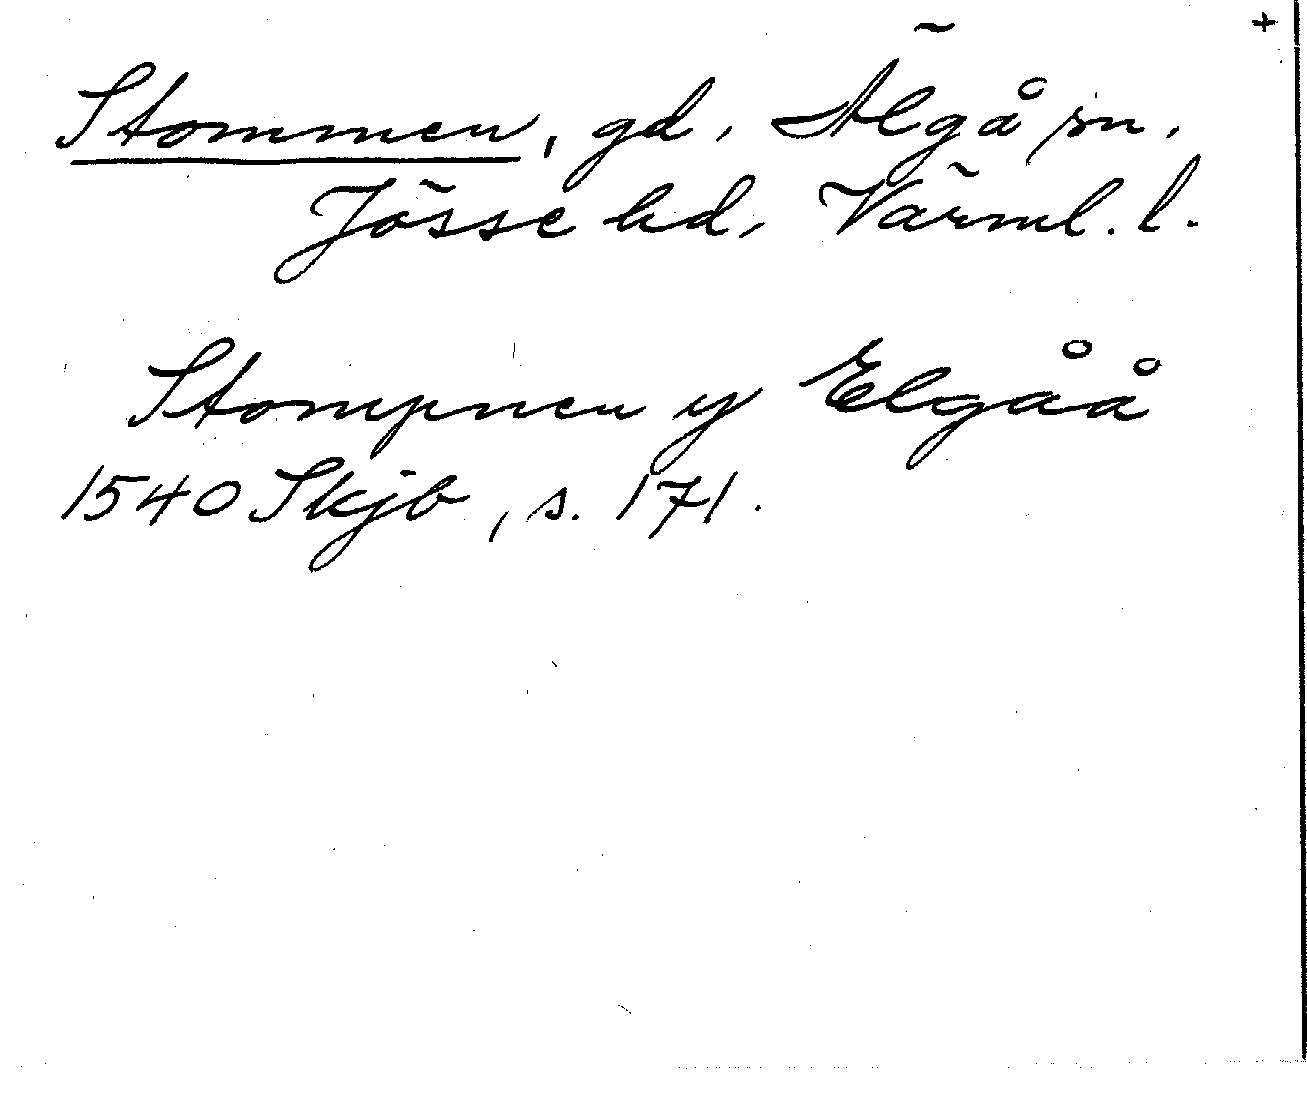 +
Stommen, gd, Älgå sn,
Jösse hd, Värml. l.
Stompnen y Elgåå
1540 Skjb, s. 171.